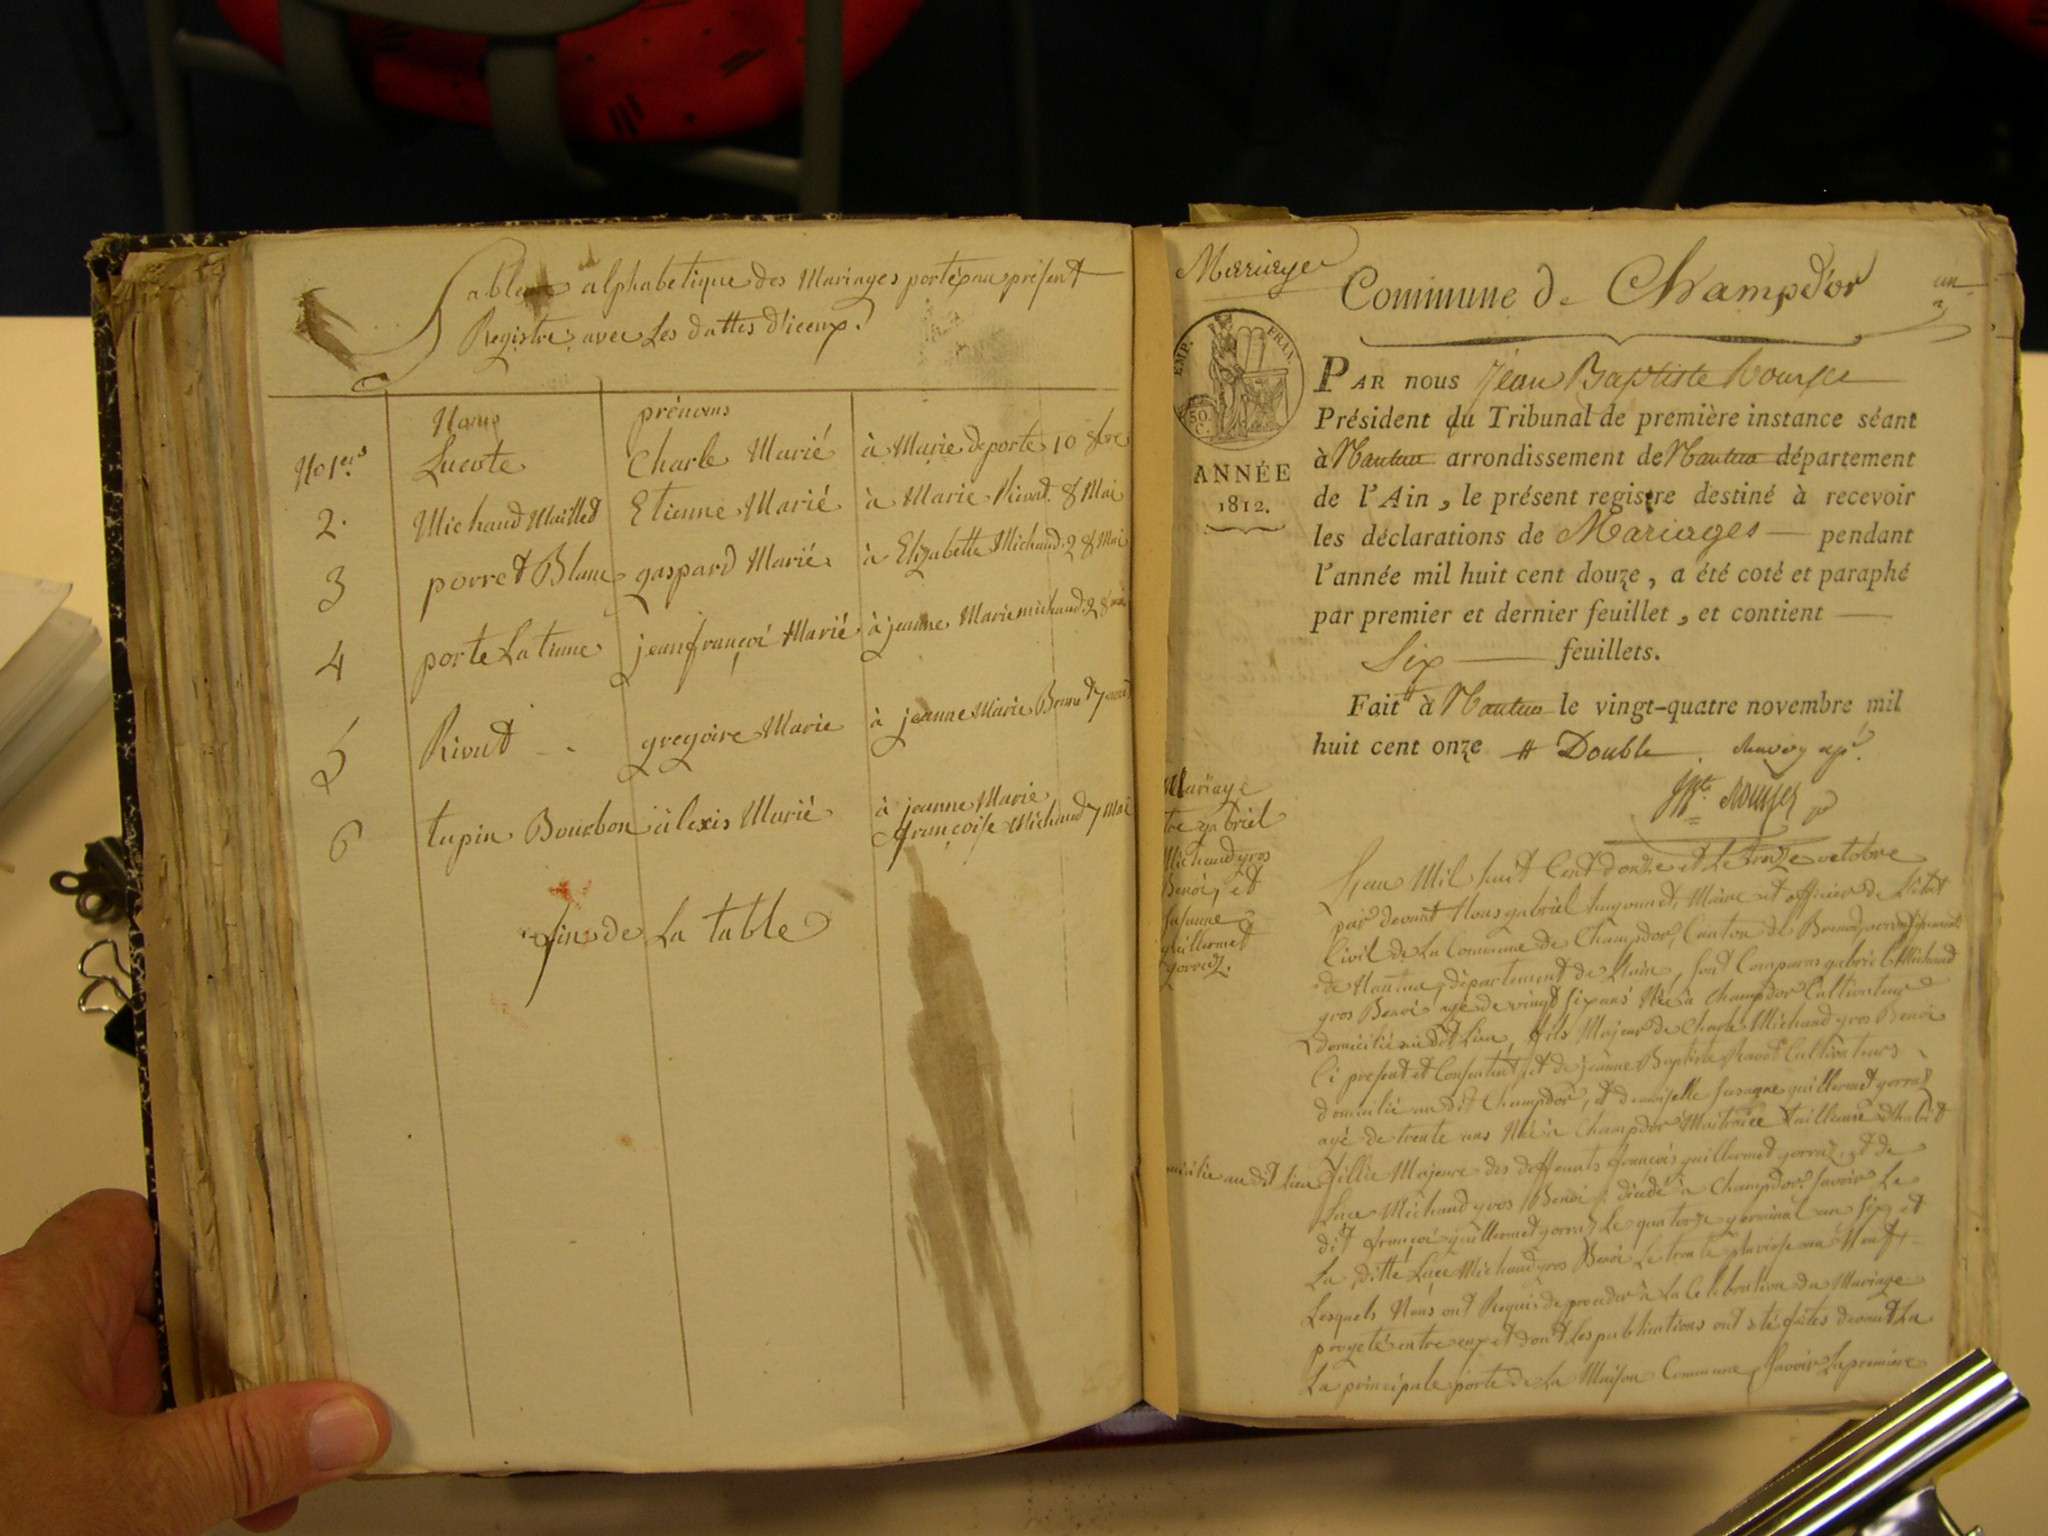 Tableau alphabetique des Mariages porté au présent
Registre avec Les dattes d'iceux.
Noms prénoms
No 1er Lucote Charle Marié à Marie deporte 10 8bre
2. Michaud Maillet Etienne Marié à Marie Rivat 8 Mai
3 porret Blanc gaspard Marié à Elizabette Michaud 28 Mai
4 porte Latinne jeanfrançoi Marié à jeanne Marie michaud 28 mai
5 Rivat gregoire Marie à jeanne Marie Brunet 7
6 tupin Bourbon alexis Marié à jeanne Marie
françoise Michaud 7 Mai
fin de La table
Mariage
Commune de Champd'or
un
EMP. FRAN.
50 C.
ANNÉE
1812.
PAR nous Jean Baptiste
Président du Tribunal de première instance séant
à Nantua arrondissement de Nantua département
de l'Ain, le présent registre destiné à recevoir
les déclarations de Mariages pendant
l'année mil huit cent douze, a été coté et paraphé
par premier et dernier feuillet, et contient
Six feuillets.
Fait à Nantua le vingt-quatre novembre mil
huit cent onze # Double
Mariage
tre gabriel
Michaud gros
Benoi, et
Susanne
guillermet
gorraz.
L'an Mil huit Cent douze et Le onze octobre
par devant Nous gabriel Maire et officier de L'état
Civil de La Commune de Champdor, Canton de Brenod,
de Nantua, département de L'ain, sont Comparus gabriel Michaud
gros Benoi agé de vingt six ans Née à Champdor Cultivateur
domicilié audit Lieu, fils Majeur de Charle Michaud gros Benoi
Ci present et Consentent et de jeanne Baptiste Ravot Cultivateurs
domicilié audit Champdor, et demoiselle Susanne guillermet gorraz
agé de trente ans Née à Champdor Maitraice tailleuse d'habit
micilie au dit lieu fillie Majeure des deffunts françois guillermet gorraz, et de
Luce Michaud gros Benoi décédé à Champdor Savoir Le
dit françoi guillermet gorraz Le quatorze germinal an six et
La ditte Luce Michaud gros Benoi Le trente pluviose an Neuf
Lesquels Nous ont Requis de proceder à La Celebration du Mariage
progeté entre eux et dont Les publications ont été faites devant La
La principale porte de La Maison Commune, Savoir La premiere